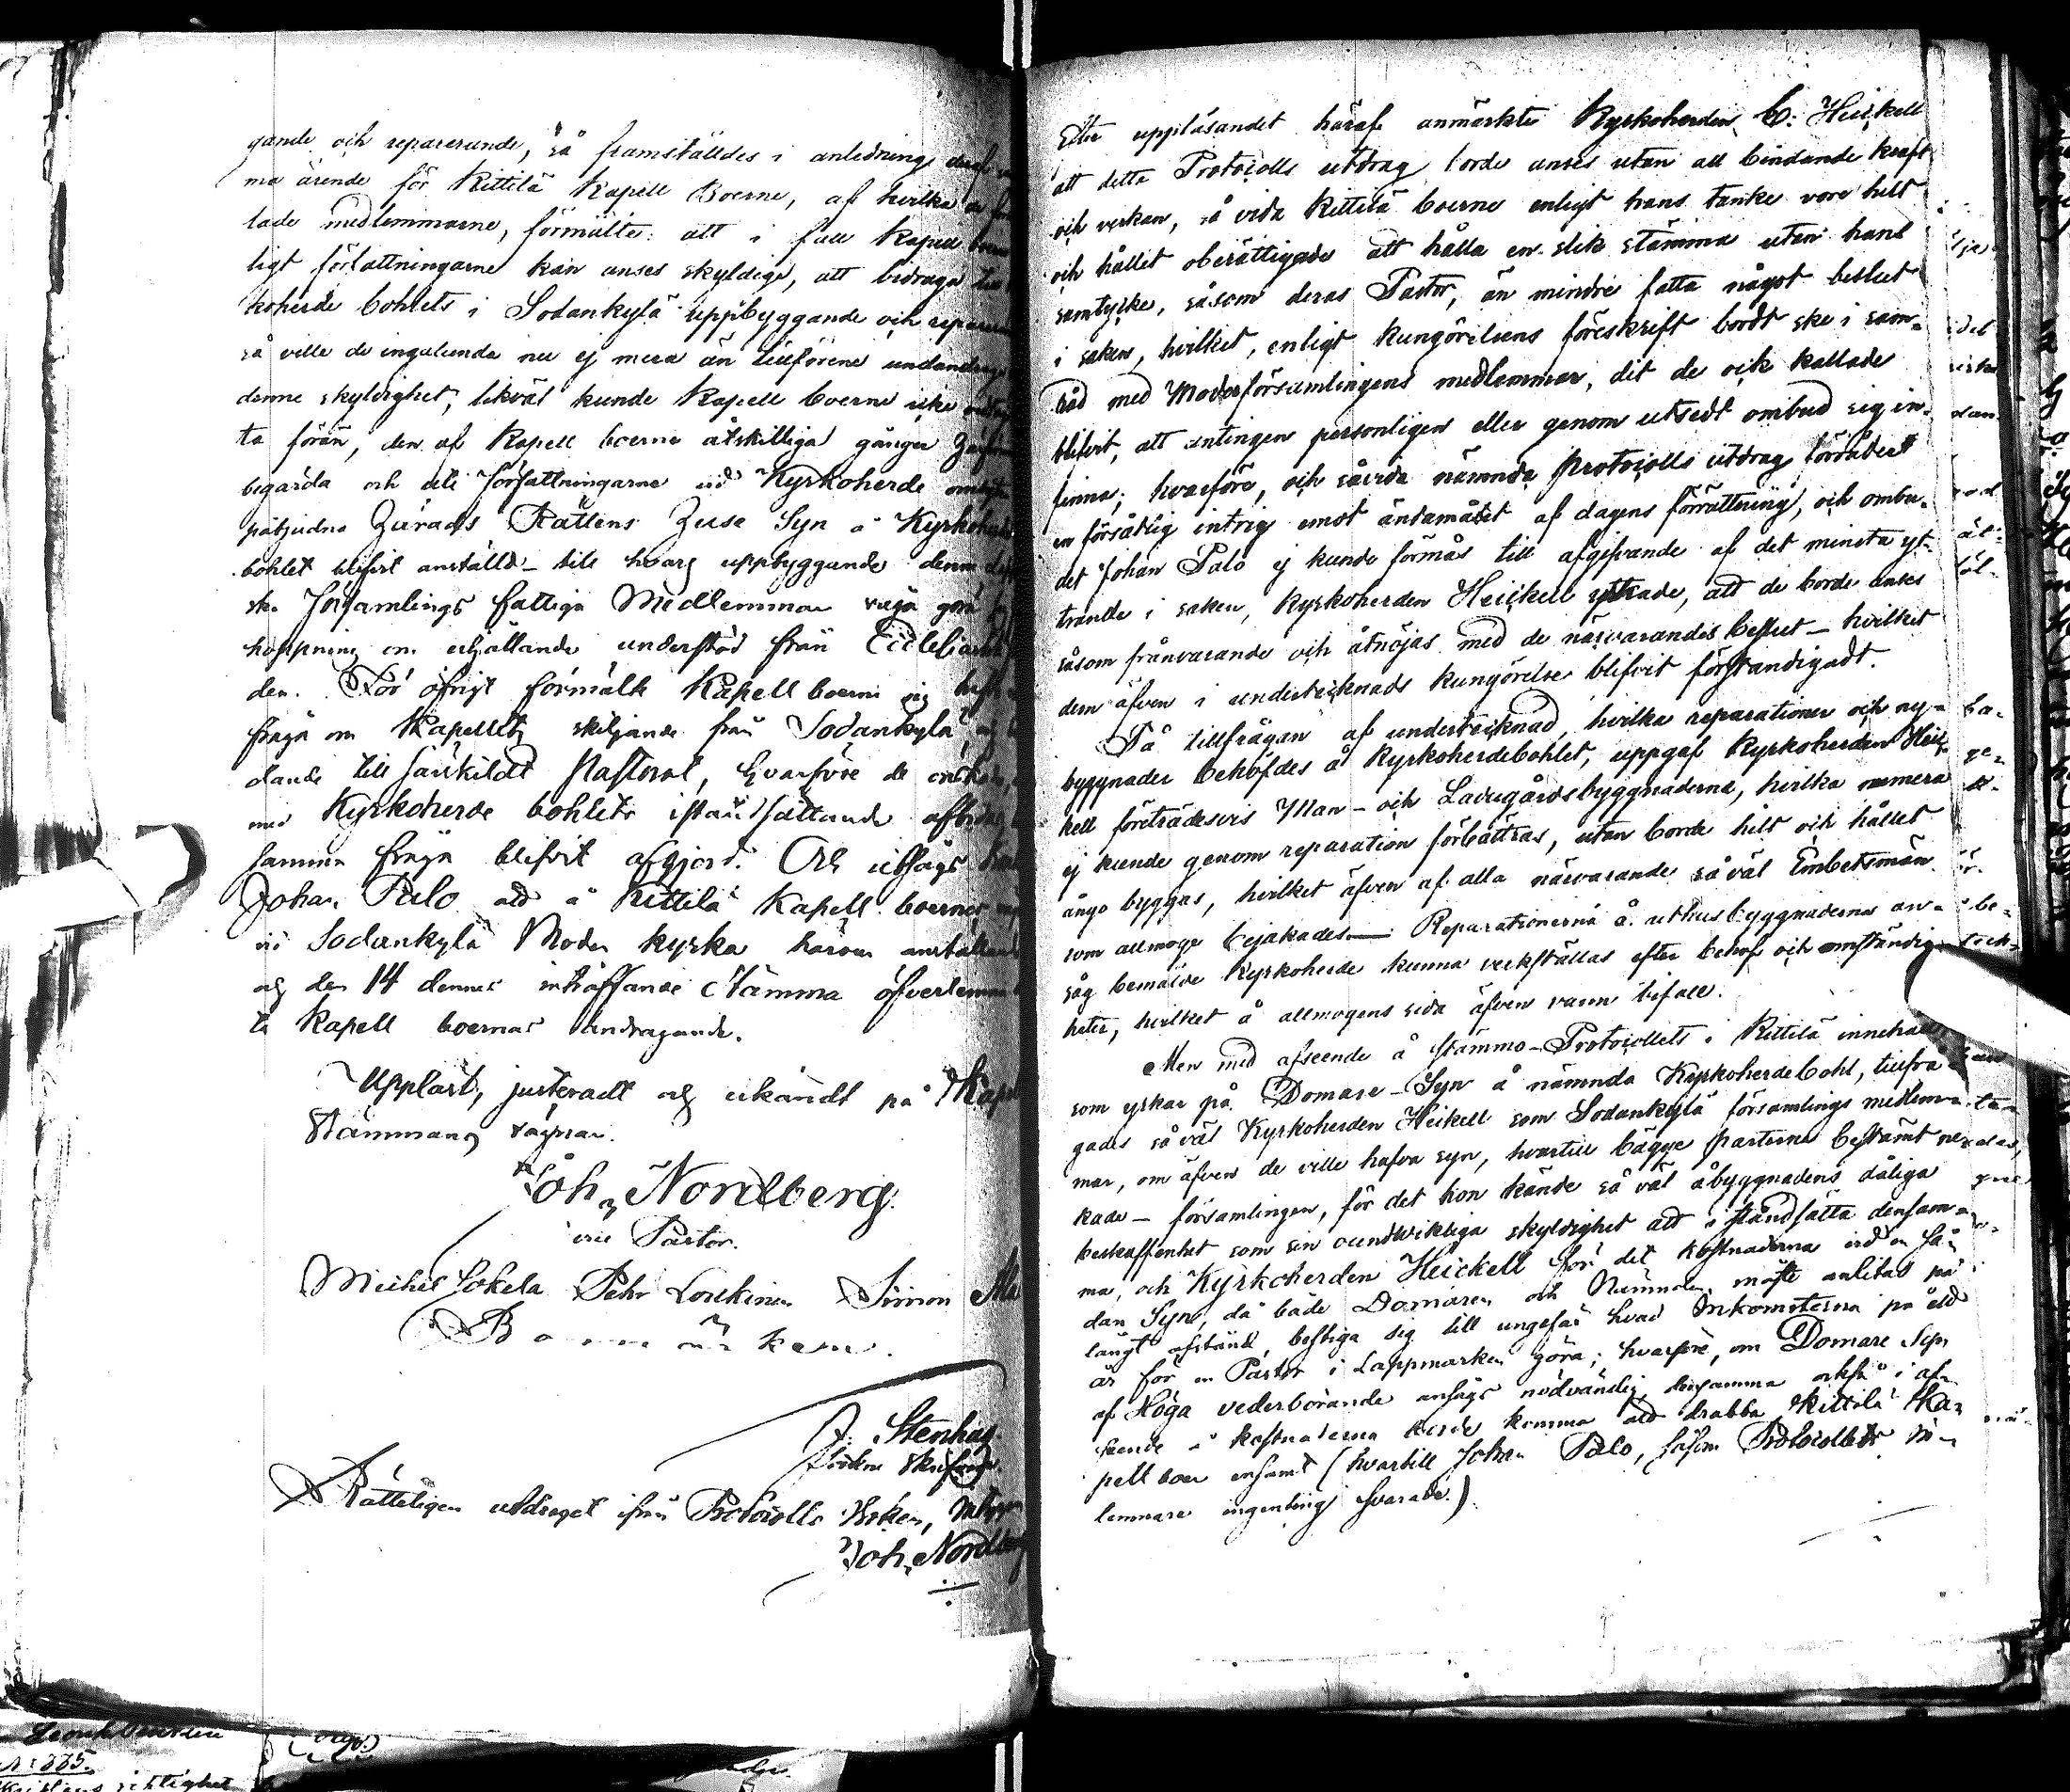 gande och reparerande, så framställdes i anledning deraf
ma ärende för Kittilä Kapell Boerne, af hvilka de
lade medlemmarne, förmälte: att i fall Kapell boerne
ligt författningarne kan anses skyldige, att bidraga till
koherde bohlets i Sodankylä uppbyggande och reparerande
så ville de ingalunda nu ej mera än tillförene undandraga
denne skyldighet, likväl kunde Kapell boerne icke
ta förän, den af Kapell boerne åtskilliga gånger
begärda och uti författningarne vid Kyrkoherde
påbjudna Härads Rättens Huse Syn å Kyrkoherde
bohlet blifvit anställd – till hvars uppbyggande denna
ska Församlings fattiga Medlemmar våga göra
hoppning om erhållande understöd från Ecclesiastik
den. För öfrigt förmälte Kapell boerne sig
fråga om Kapellets skiljande från Sodankylä,
dande till särskildt Pastorat, hvarföre de önskade,
med Kyrkoherde bohlets istånd sättande
samma fråga blifvit afgjord. Och utsågs
Johan Palo att å Kittilä Kapell boernes
vid Sodankylä Moder kyrka härom anställande
och den 14 dennes inträffande Stämma öfverlemna
ta Kapell boernas andragande.
Uppläst, justeradt och erkändt på
Stämmans vägnar.
Joh. Nordberg
vice Pastor.
Michel Jokela Pehr Loukinen Simon
Bomärken.
J. Stenhag.
Sockne Skrifvare.
Rätteligen utdraget ifrån Protocolls Boken,
Joh. Nordberg
Efter uppläsandet häraf anmärkte Kyrkoherden C. Heickell
att detta Protocolls utdrag torde anses utan all bindande kraft
och verkan, så vida Kittilä boerne enligt hans tanke vore helt
och hållet oberättigade att hålla en slik stämma utan hans
samtycke, såsom deras Pastor, än mindre fatta något beslut
i saken, hvilket, enligt kungörelsens föreskrift bordt ske i sam-
råd med Moderförsamlingens medlemmar, dit de ock kallade
blifvit, att antingen personligen eller genom utsedt ombud sig in-
finna; hvarföre, och såvida nämnda Protocolls utdrag förrådert
en försåtlig intrig emot ändamålet af dagens förrättning, och ombu-
det Johan Palo ej kunde förmås till afgifvande af det minsta yt-
trande i saken, Kyrkoherden Heickell yrkade, att de borde anses
såsom frånvarande och åtnöjas med de närvarandes beslut – hvilket
dem äfven i undertecknads kungörelse blifvit förständigadt.
På tillfrågan af undertecknad, hvilka reparationer och ny-
byggnader behöfdes å Kyrkoherdebohlet, uppgaf Kyrkoherden Heic-
kell företrädesvis Man- och Ladugårdsbyggnaderna, hvilka numera
ej kunde genom reparation förbättras, utan borde helt och hållet
ånyo byggas, hvilket äfven af alla närvarande så väl Embetsmän
som allmoge bejakades – Reparationerna å uthusbyggnaderna an-
såg bemälde Kyrkoherde kunna verkställas efter behof och omständig-
heter, hvilket å allmogens sida äfven vann bifall.
Men med afseende å Stämmo-Protocollets i Kittilä innehåll
som yrkar på Domare-Syn å nämnda Kyrkoherdebohl, tillfrå-
gades så väl Kyrkoherden Heikell som Sodankylä församlings medlem-
mar, om äfven de ville hafva syn, hvartill bägge parterne bestämt ne-
kade – församlingen, för det hon kände så väl åbyggnadens dåliga
beskaffenhet som sin oundvikliga skyldighet att i ståndsätta densam-
ma, och Kyrkoherden Heickell för det kostnaderna vid en så-
dan Syn, då både Domaren och Nämnden måste anlitas på
långt afstånd, bestiga sig till ungefär hvad Inkomsterna på ett
år för en Pastor i Lappmarken göra; hvarföre, om Domare Syn
af Höga vederbörande ansågs nödvändig, densamma också i af-
seende å kostnaderna borde komma att drabba Kittilä Ka-
pell boer ensamt (hvartill Johan Palo, såsom Protocollets in-
lemnare ingenting svarade.)